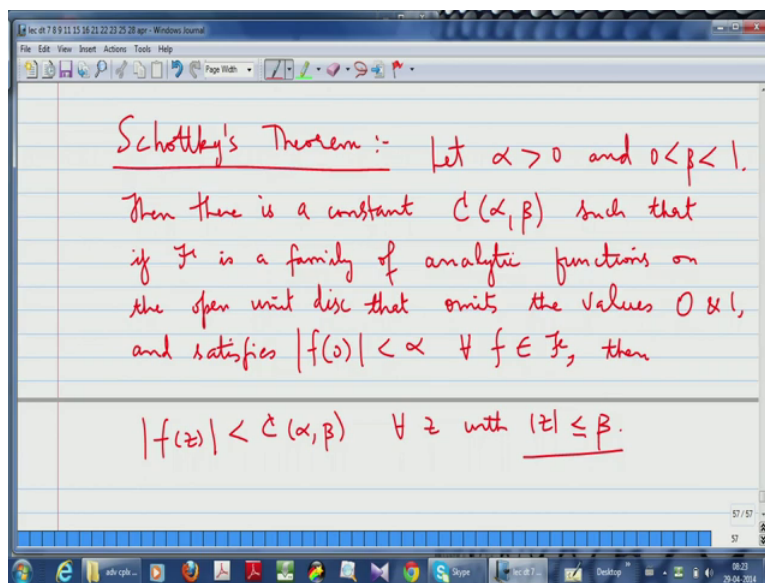 lec dt 7 8 9 11 15 16 21 22 23 25 28 apr - Windows Journal
File Edit View Insert Actions Tools Help
Page Width
Schottky's Theorem :- Let α > 0 and 0 < β < 1.
Then there is a constant C(α, β) such that
if ℱ is a family of analytic functions on
the open unit disc that omits the values 0 & 1,
and satisfies |f(0)| < α ∀ f ∈ ℱ, then
|f(z)| < C(α, β) ∀ z with |z| ≤ β.
57 / 57
57
adv cplx ... Skype lec dt 7 ... Desktop 08:23
29-04-2014